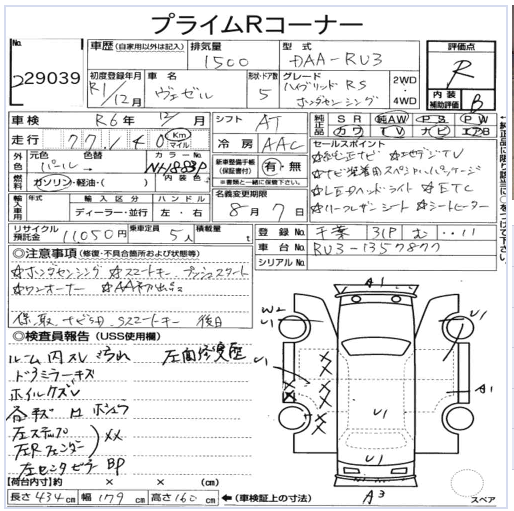 プライムRコーナー
No.
29039
車歴 (自家用以外は記入) 排気量 1500 型式 DAA-RU3
評価点 R
初度登録年月 R1/12月 車名 ヴェゼル 形状・ドア数 5 グレード ハイブリッド RS ホンダセンシング 2WD・4WD
内装補助評価 B
車検 R6年 12/月 シフト AT
純正品 SR 純AW PS PW
カワ TV ナビ エアB
走行 77,140 Km マイル 冷房 AAC
外装 元色 パール 色替 カラーNo. NH883P 内装色
燃料 ガソリン・軽油・( )
新車整備手帳(保証書付) 有・無
※書類と一緒に保管して下さい。
セールスポイント
☆純正ナビ ☆フルセグTV
☆ナビ装着用スペシャルパッケージ
☆LEDヘッドライト ☆ETC
☆ハーフレザーシート ☆シートヒーター
輸入車用 年式 輸入区分 ディーラー・並行 ハンドル 左・右
名義変更期限 8月7日
リサイクル預託金 11050円 乗車定員 5人 積載量 t
登録No. 千葉 31P む ‥11
車台No. RU3-1357877
シリアルNo.
◎注意事項 (修復・不具合箇所および状態等)
☆ホンダセンシング ☆スマートキー プッシュスタート
☆ワンオーナー ☆AA初出品
保、取、ナビSD、Sスマートキー 後日
◎検査員報告 (USS使用欄)
ルーム内スレ 汚れ 左面修復歴
ドアミラーキズ
ホイルケズレ
左ステップ
左Rフェンダー XX
左センターピラー BP
A1
W2
U1
U1
U1
A1
U1
U1
A3
【荷台内寸】 × × (cm)
長さ 434cm 幅 179cm 高さ 160cm ←(車検証上の寸法)
スペア
←純正品に限り該当に○をつけて下さい。